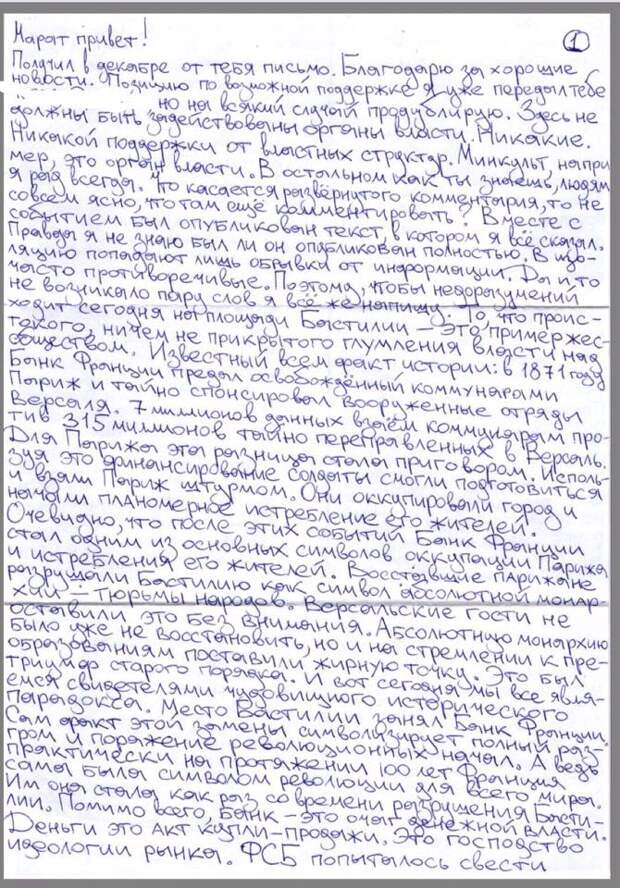 Марат привет!
1
Получил в декабре от тебя письмо. Благодарю за хорошие
новости. Позицию по возможной поддержке я уже передал тебе
но на всякий случай продублирую. Здесь не
должны быть задействованы органы власти. Никакие.
Никакой поддержки от властных структур. Минкульт, напри
мер, это орган власти. В остальном как ты знаешь, людям
я рад всегда. Что касается развёрнутого комментария, то не
совсем ясно, что там ещё комментировать? Вместе с
событием был опубликован текст в котором я всё сказал.
Правда я не знаю был ли он опубликован полностью. В изо-
ляцию попадают лишь обрывки от информации. Да и то
часто противоречивые. Поэтому, чтобы недоразумений
не возникало пару слов я всё же напишу. То, что проис-
ходит сегодня на площади Бастилии – это пример жес-
токого, ничем не прикрытого глумления власти над
обществом. Известный всем факт истории: в 1871 году
Банк Франции предал освобождённый коммунарами
Париж и тайно спонсировал вооруженные отряды
Версаля. 7 миллионов данных взаём коммунарам про-
тив 315 миллионов тайно переправленных в Версаль.
Для Парижа эта разница стала приговором. Исполь-
зуя это финансирование солдаты смогли подготовиться
и взяли Париж штурмом. Они оккупировали город и
начали планомерное истребление его жителей.
Очевидно, что после этих событий Банк Франции
стал одним из основных символов оккупации Парижа
и истребления его жителей. Восставшие парижане
разрушали Бастилию как символ абсолютной монар-
хии – тюрьмы народов. Версальские гости не
оставили это без внимания. Абсолютную монархию
было уже не восстановить, но и на стремлении к пре-
образованиям поставили жирную точку. Это был
триумф старого порядка. И вот сегодня мы все явля-
емся свидетелями чудовищного исторического
парадокса. Место Бастилии занял Банк Франции.
Сам факт этой замены символизирует полный раз-
гром и поражение революционных начал. А ведь
практически на протяжении 100 лет Франция
сама была символом революции для всего мира.
Им она стала как раз со времени разрушения Басти-
лии. Помимо всего, Банк – это очаг денежной власти.
Деньги это акт купли-продажи. Это господство
идеологии рынка. ФСБ попыталось свести